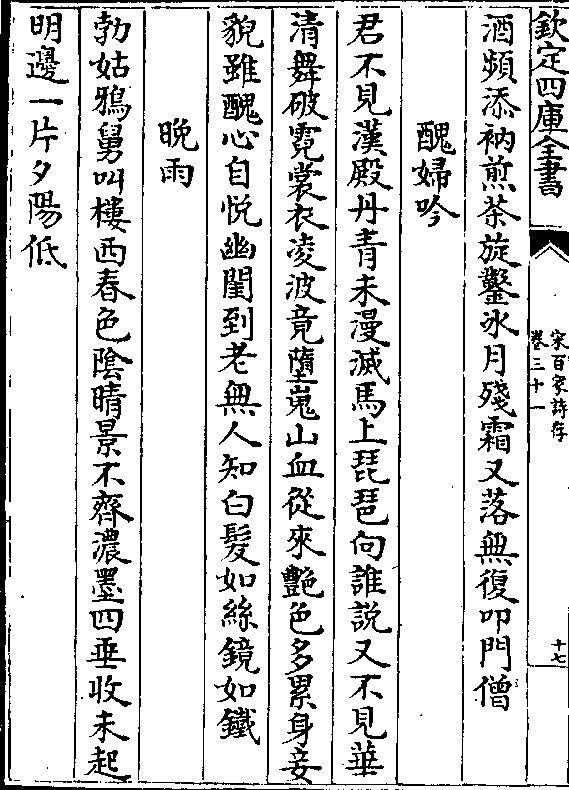 欽定四庫全書
宋百家詩存
卷三十一
十七
酒頻添衲煎茶旋鑿冰月殘霜又落無復叩門僧
醜婦吟
君不見漢殿丹青未漫滅馬上琵琶向誰説又不見華
清舞破霓裳衣凌波竟墮嵬山血從來艷色多累身妾
貌雖醜心自悦幽閨到老無人知白髮如絲鏡如鐵
晚雨
勃姑鴉舅叫樓西春色陰晴景不齊濃墨四垂收未起
明邊一片夕陽低